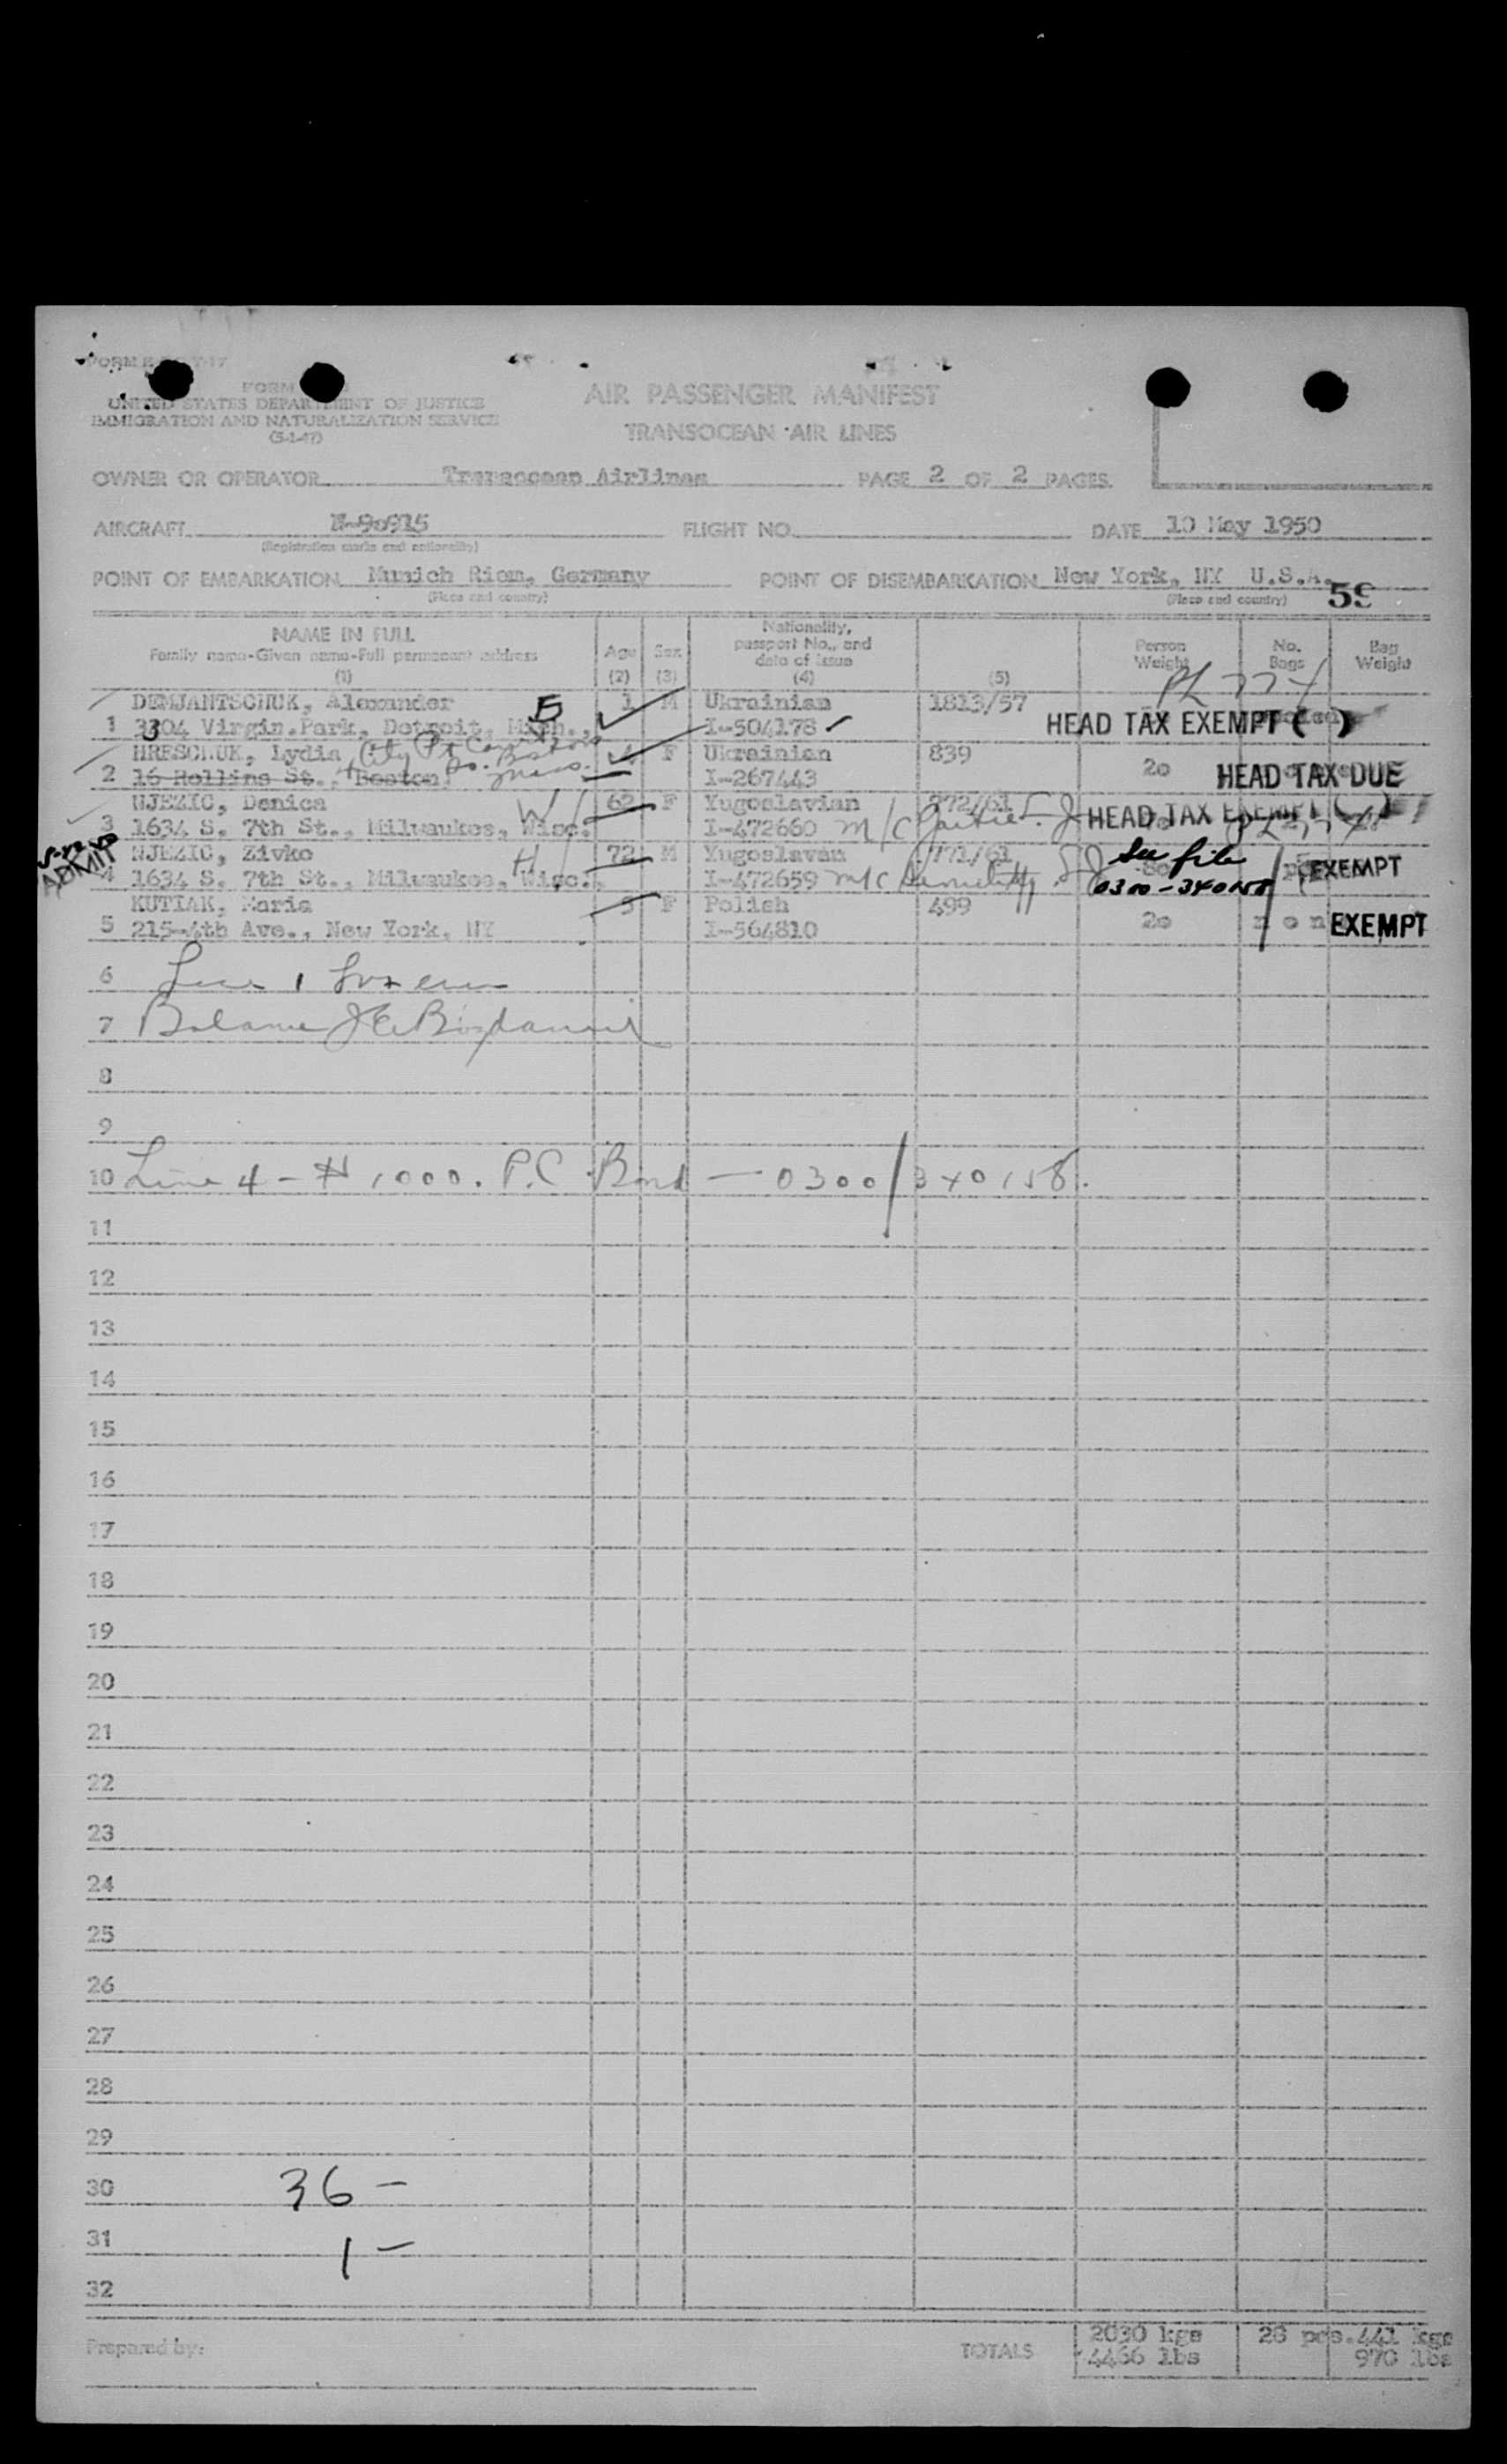 UNITED STATES DEPARTMENT OF JUSTICE
IMMIGRATION AND NATURALIZATION SERVICE
(5-1-47)
AIR PASSENGER MANIFEST
TRANSOCEAN AIR LINES
OWNER OR OPERATOR Transocean Airlines PAGE 2 OF 2 PAGES
AIRCRAFT N-90915 FLIGHT NO. DATE 10 May 1950
(Registration marks and nationality)
POINT OF EMBARKATION Munich Riem, Germany POINT OF DISEMBARKATION New York, NY U.S.A.
(Place and country) (Place and country) 59
NAME IN FULL Age Sex Nationality, passport No., and date of issue Person Weight No. Bags Bag Weight
Family name-Given name-Full permanent address
(1) (2) (3) (4) (5)
DEMJANTSCHUK, Alexander 1 M Ukrainian 1813/57
1 3304 Virgin.Park, Detroit, Mich., I-504178 HEAD TAX EXEMPT ( )
HRESCHUK, Lydia F Ukrainian 839
2 16 Rollins St., Boston, Mass. I-267443 20 HEAD TAX DUE
NJEZIC, Denica W/ 62 F Yugoslavian 772/61
3 1634 S. 7th St., Milwaukee, Wisc. I-472660 M/C HEAD TAX EXEMPT ( )
NJEZIC, Zivko H/ 72 M Yugoslavan 771/61 See file
4 1634 S. 7th St., Milwaukee, Wisc. I-472659 M/C 0300-340158 EXEMPT
ADMIT
KUTIAK, Maria 5 F Polish 499
5 215-4th Ave., New York, NY I-564810 20 non EXEMPT
6 Line 1
7 Balance
8
9
10 Line 4 - # 1000. P.C Bond - 0300/340158.
11
12
13
14
15
16
17
18
19
20
21
22
23
24
25
26
27
28
29
30 36 -
31 1 -
32
Prepared by: TOTALS 2030 kgs 28 pcs. 441 kgs
4466 lbs 970 lbs